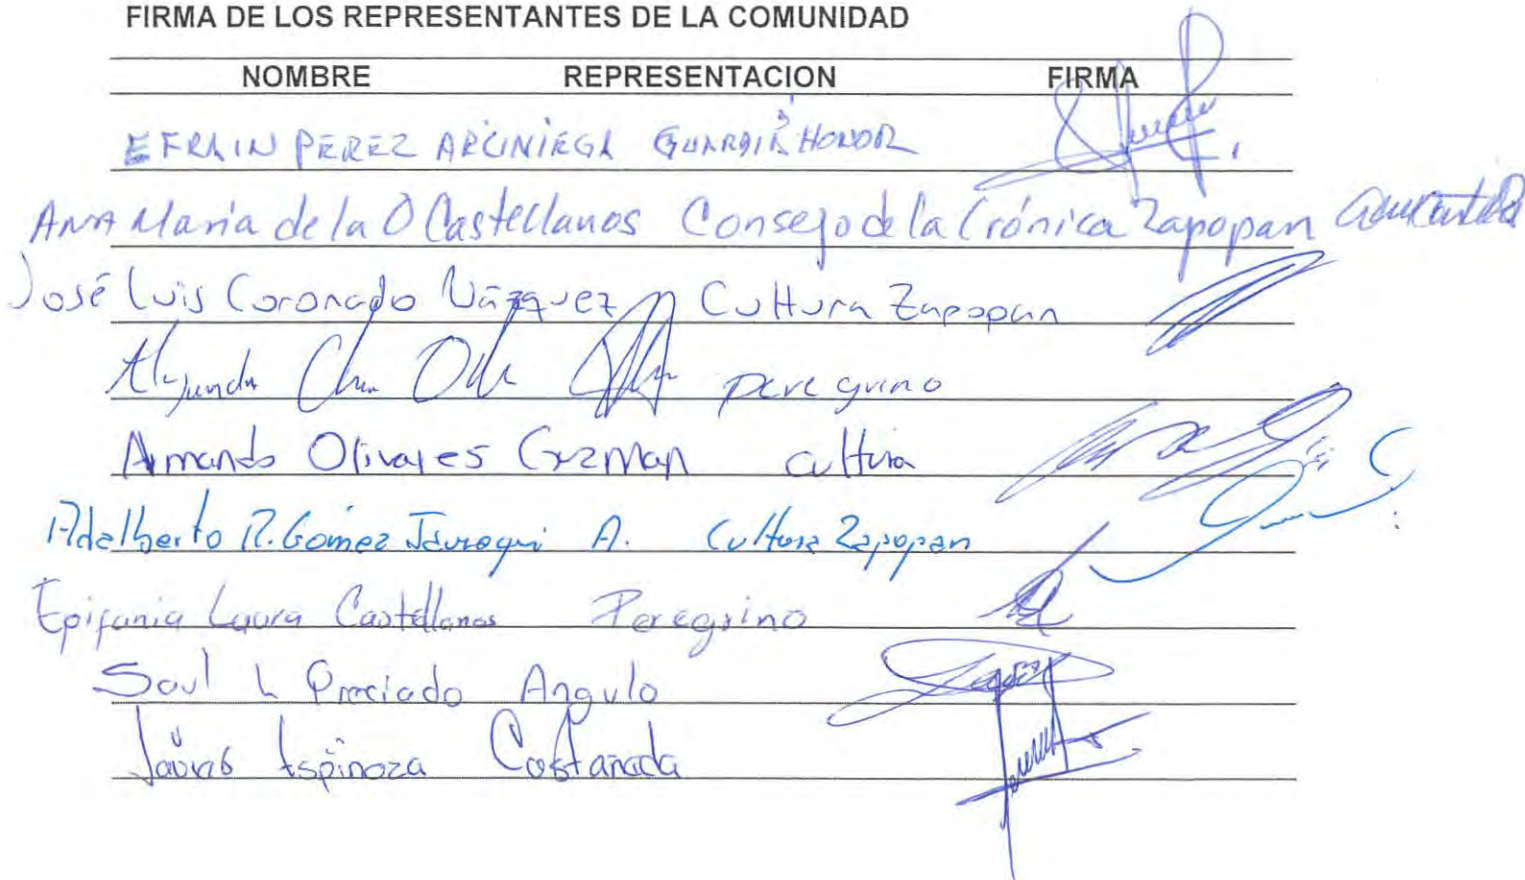 FIRMA DE LOS REPRESENTANTES DE LA COMUNIDAD
NOMBRE REPRESENTACION FIRMA
EFRAIN PEREZ ARCINIEGA GUARDIA HONOR
ANA Maria de la O Castellanos Consejo de la Crónica Zapopan
José Luis Coronado Vázquez Cultura Zapopan
peregrino
Armando Olivares Guzman cultura
Adalberto R. Gómez Jauregui A. Cultura Zapopan
Epifania Laura Castellanos Peregrino
Saul L Preciado Angulo
Espinoza